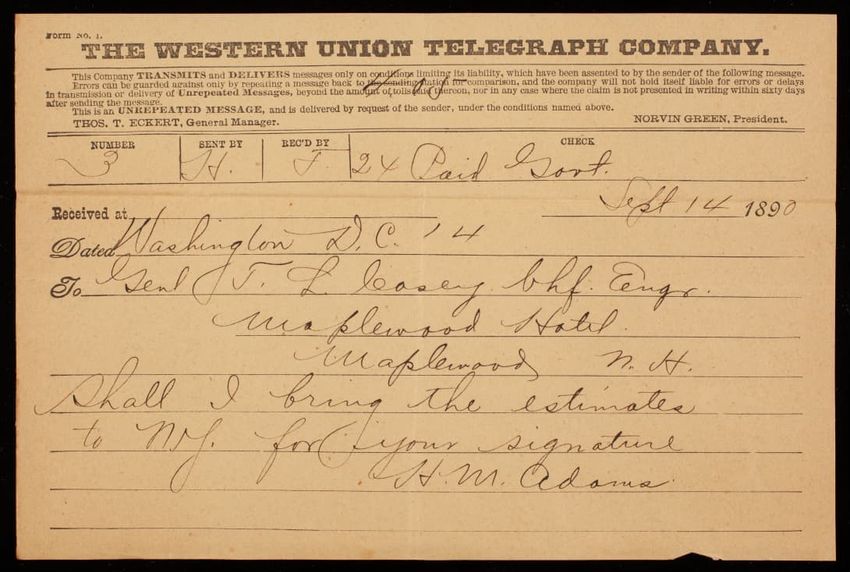 Form No. 1.
THE WESTERN UNION TELEGRAPH COMPANY.
This Company TRANSMITS and DELIVERS messages only on conditions limiting its liability, which have been assented to by the sender of the following message.
Errors can be guarded against only by repeating a message back to the sending station for comparison, and the company will not hold itself liable for errors or delays
in transmission or delivery of Unrepeated Messages, beyond the amount of tolls paid thereon, nor in any case where the claim is not presented in writing within sixty days
after sending the message.
This is an UNREPEATED MESSAGE, and is delivered by request of the sender, under the conditions named above.
THOS. T. ECKERT, General Manager. NORVIN GREEN, President.
NUMBER SENT BY REC'D BY CHECK
3 H. F 24 Paid Govt.
Sept 14 1890
Received at
Dated Washington D.C. 14
To Genl T. L. Casey Chf. Engr.
Maplewood Hotel.
Maplewood N. H.
Shall I bring the estimates
to N.Y. for your signature
H. M. Adams